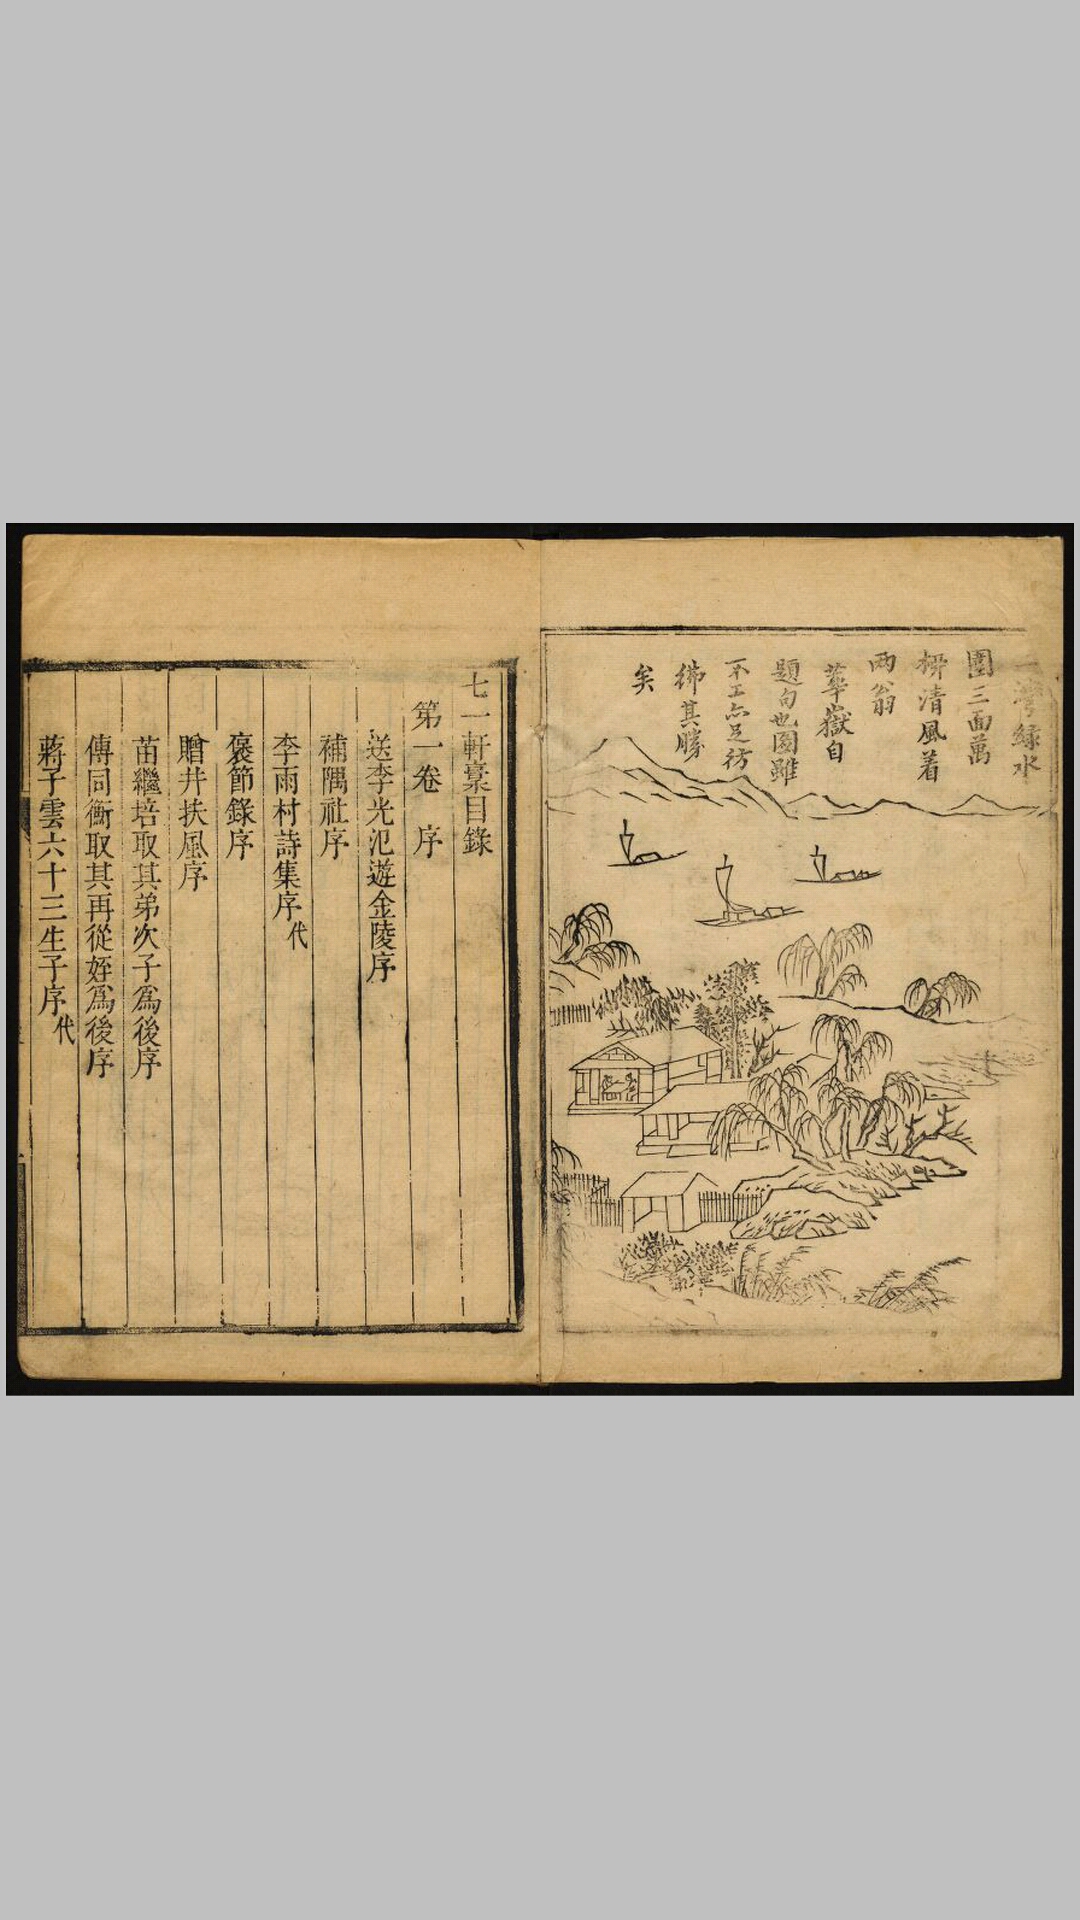 一灣綠水
圍三面萬
栁清風着
两翁
華嶽自
題句也圖雖
不工亦足彷
彿其勝
矣
七一軒稾目錄
第一卷 序
送李光汜遊金陵序
補隅社序
李雨村詩集序代
襃節錄序
贈井扶風序
苗繼培取其弟次子爲後序
傳同衡取其再從姪爲後序
蔣子雲六十三生子序代